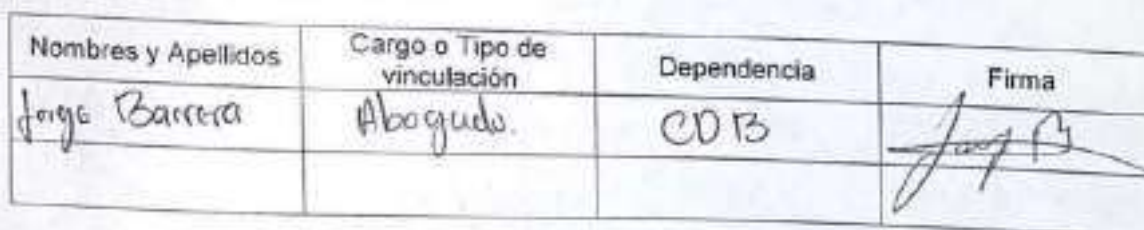 Nombres y Apellidos Cargo o Tipo de vinculación Dependencia Firma
Jorge Barrera Abogado. CDB Jorge B